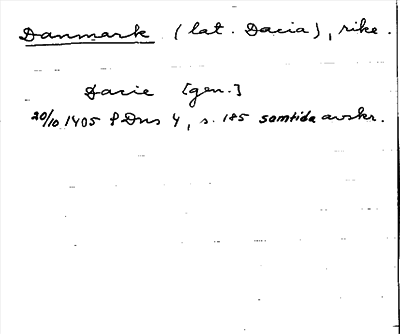 Danmark (lat. Dacia), rike.
Dacie [gen.]
20/10 1405 SDns 4, s. 185 samtida avskr.